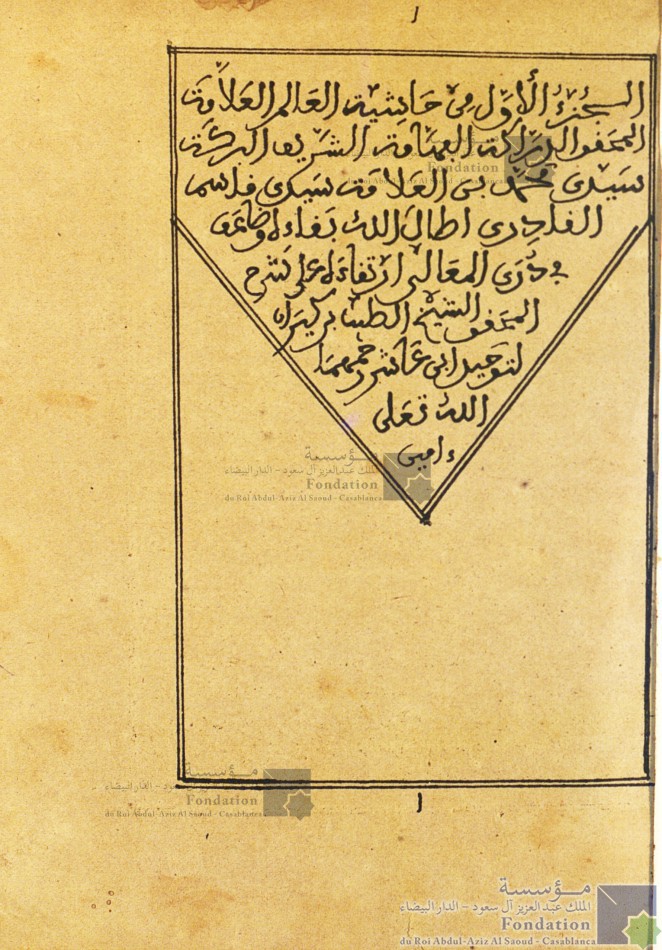 ١
الجُزْءُ الْأَوَّل مِنْ حَاشِيَةِ العَالِمِ العَلاَّمَةِ
المحَقق الدرَّاكَة الفهَّامَة الشريف البركَة
سَيِّدى محمَّد بن العَلاَّمَة سَيِّدى قاسم
القادِرى اطالَ اللهُ بَقاءه وضاعَف
في ذُرَى المَعَالي ارتقاءه على شرح
المحقق الشيخ الطيب بن كيران
لتوحيد ابن عَاشر رحمهما
اللهُ تعَلى
ءامين
مؤسسة
الملك عبدالعزيز آل سعود - الدار البيضاء
Fondation
du Roi Abdul-Aziz Al Saoud - Casablanca
مؤسسة
الملك عبدالعزيز آل سعود - الدار البيضاء
Fondation
du Roi Abdul-Aziz Al Saoud - Casablanca
١
مؤسسة
الملك عبدالعزيز آل سعود - الدار البيضاء
Fondation
du Roi Abdul-Aziz Al Saoud - Casablanca